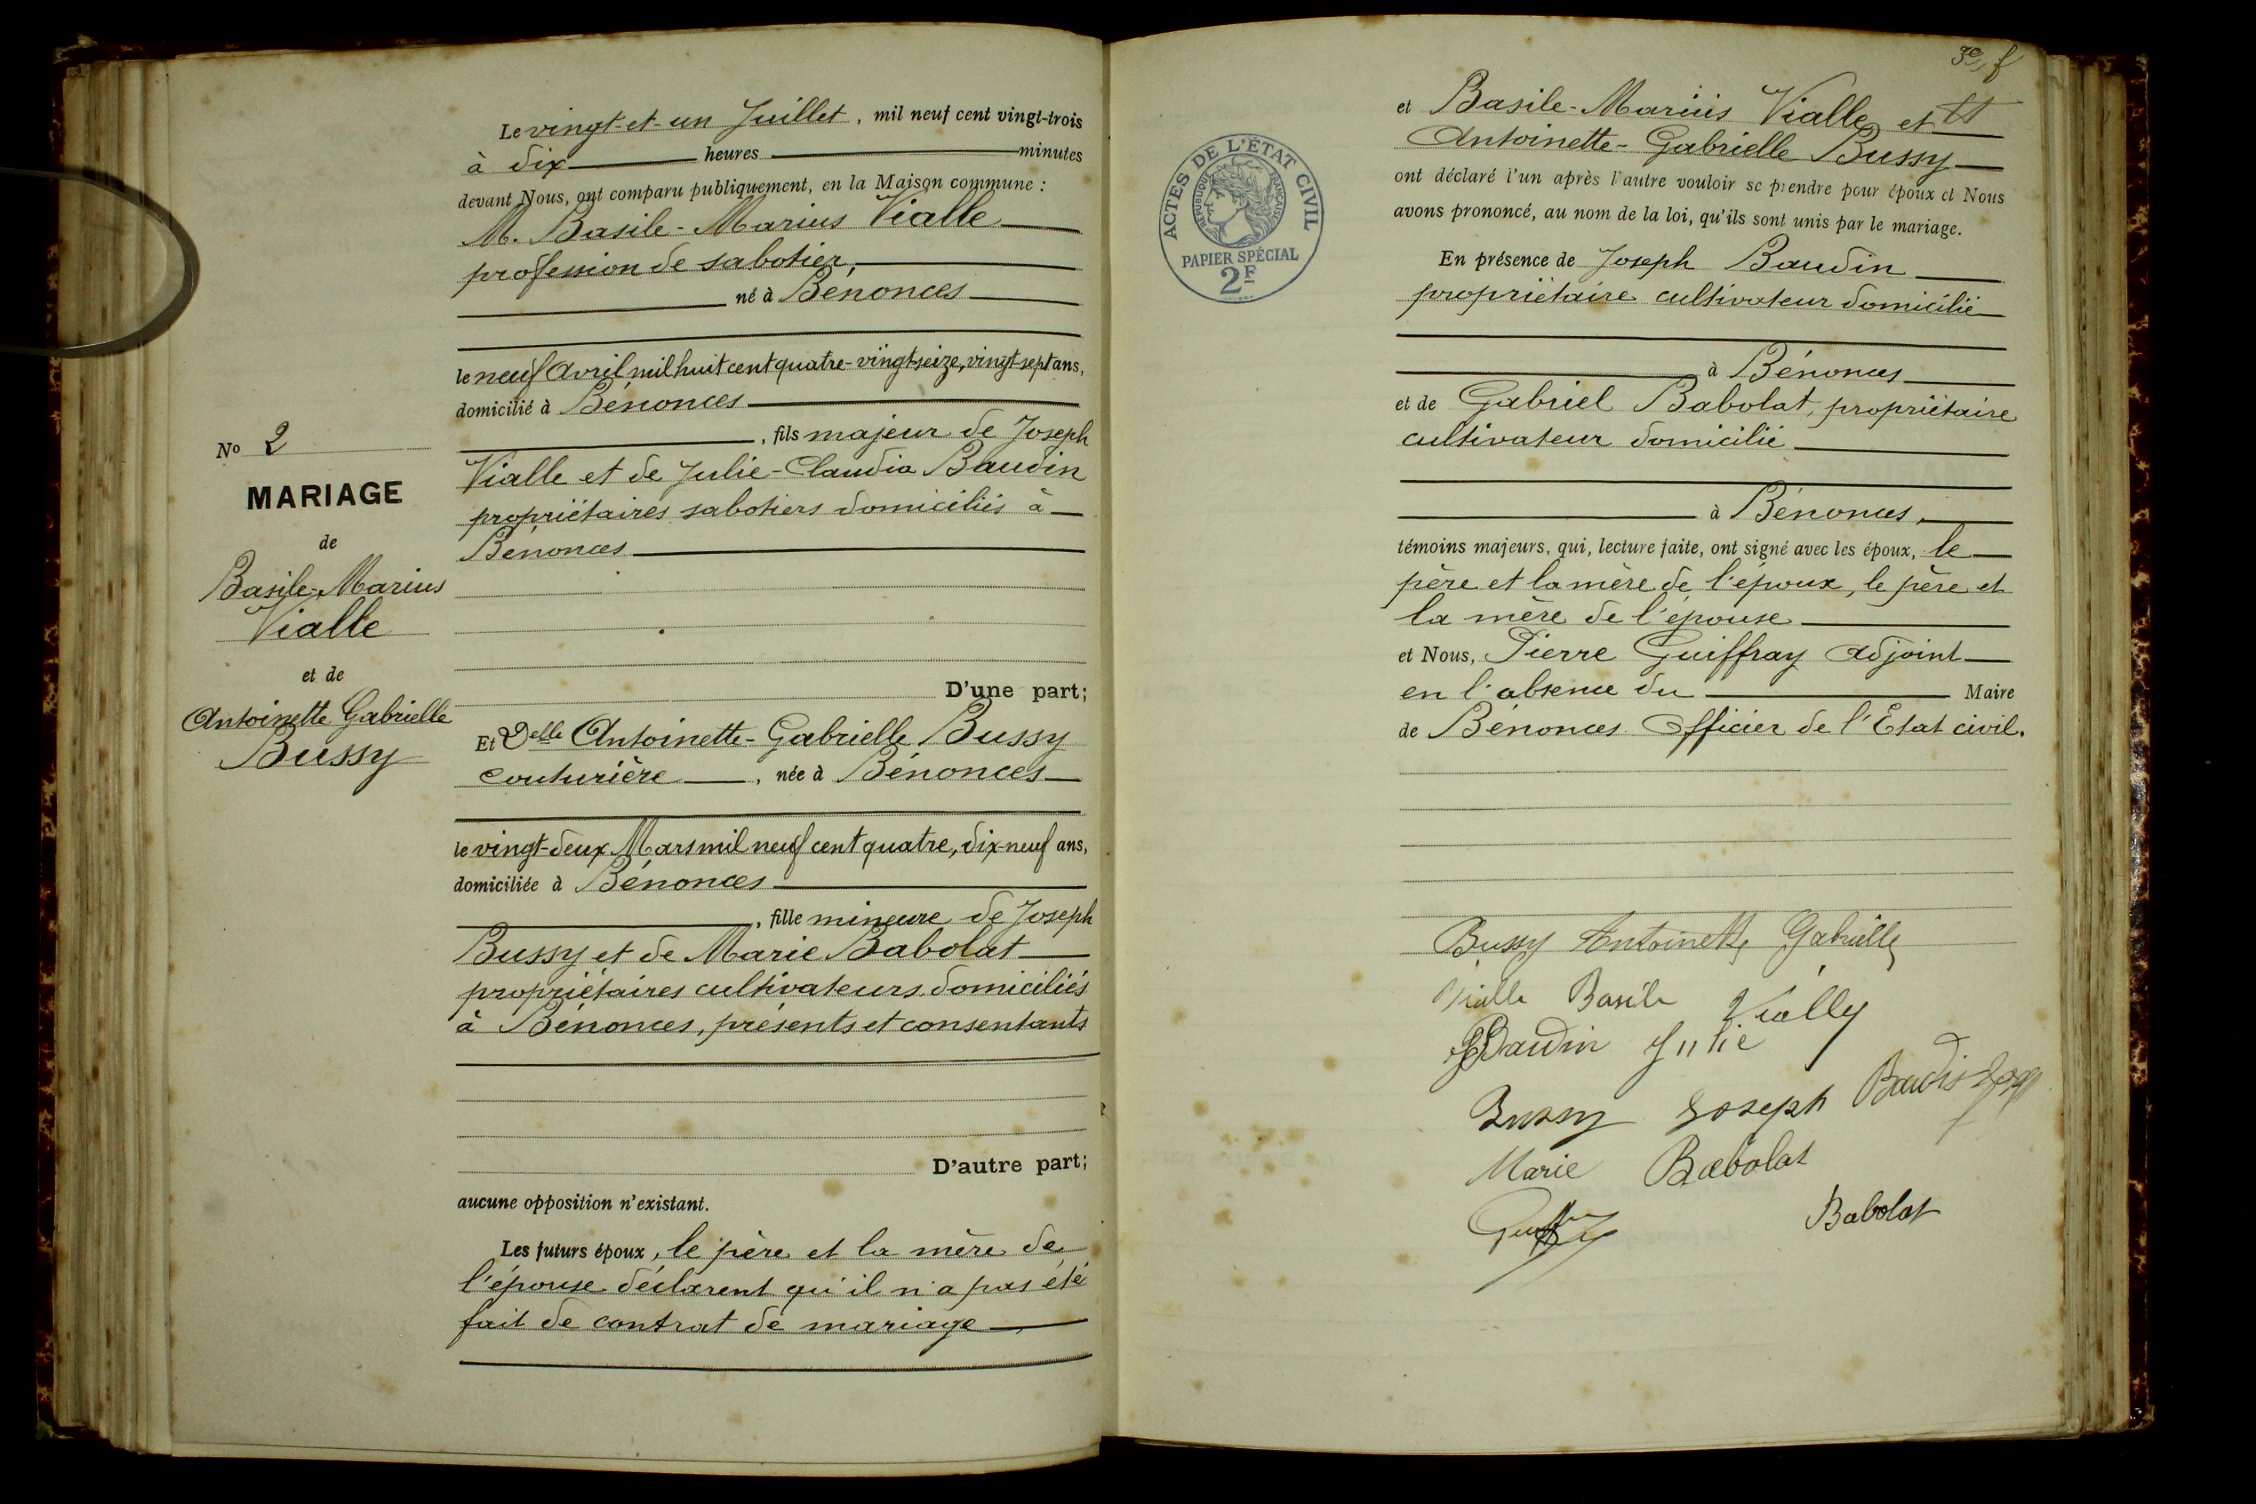 Le vingt-et-un Juillet, mil neuf cent vingt-trois
à dix heures minutes
devant Nous, ont comparu publiquement, en la Maison commune :
M. Basile-Marius Vialle
profession de sabotier,
né à Bénonces
le neuf Avril mil huit cent quatre-vingt-seize, vingt-sept ans,
domicilié à Bénonces
, fils majeur de Joseph
Vialle et de Julie-Claudia Baudin
propriétaires sabotiers domiciliés à
Bénonces
D'une part;
Et Delle Antoinette-Gabrielle Bussy
couturière, née à Bénonces
le vingt-deux Mars mil neuf cent quatre, dix-neuf ans,
domiciliée à Bénonces
, fille mineure de Joseph
Bussy et de Marie Babolat
propriétaires cultivateurs domiciliés
à Bénonces, présents et consentants
D'autre part;
aucune opposition n'existant.
Les futurs époux, le père et la mère de
l'épouse déclarent qu'il n'a pas été
fait de contrat de mariage
No 2
MARIAGE
de
Basile-Marius
Vialle
et de
Antoinette Gabrielle
Bussy
ACTES DE L'ÉTAT CIVIL
RÉPUBLIQUE FRANÇAISE
PAPIER SPÉCIAL
2F
et Basile-Marius Vialle et
Antoinette-Gabrielle Bussy
ont déclaré l'un après l'autre vouloir se prendre pour époux et Nous
avons prononcé, au nom de la loi, qu'ils sont unis par le mariage.
En présence de Joseph Baudin
propriétaire cultivateur domicilié
à Bénonces
et de Gabriel Babolat, propriétaire
cultivateur domicilié
à Bénonces,
témoins majeurs, qui, lecture faite, ont signé avec les époux, le
père et la mère de l'époux, le père et
la mère de l'épouse
et Nous, Pierre Guiffray Adjoint
en l'absence du Maire
de Bénonces Officier de l'Etat civil.
Bussy Antoinette Gabrielle
Vialle Basile
Vially
Baudin Julie
Bussy Joseph
Marie Babolat
Babolat